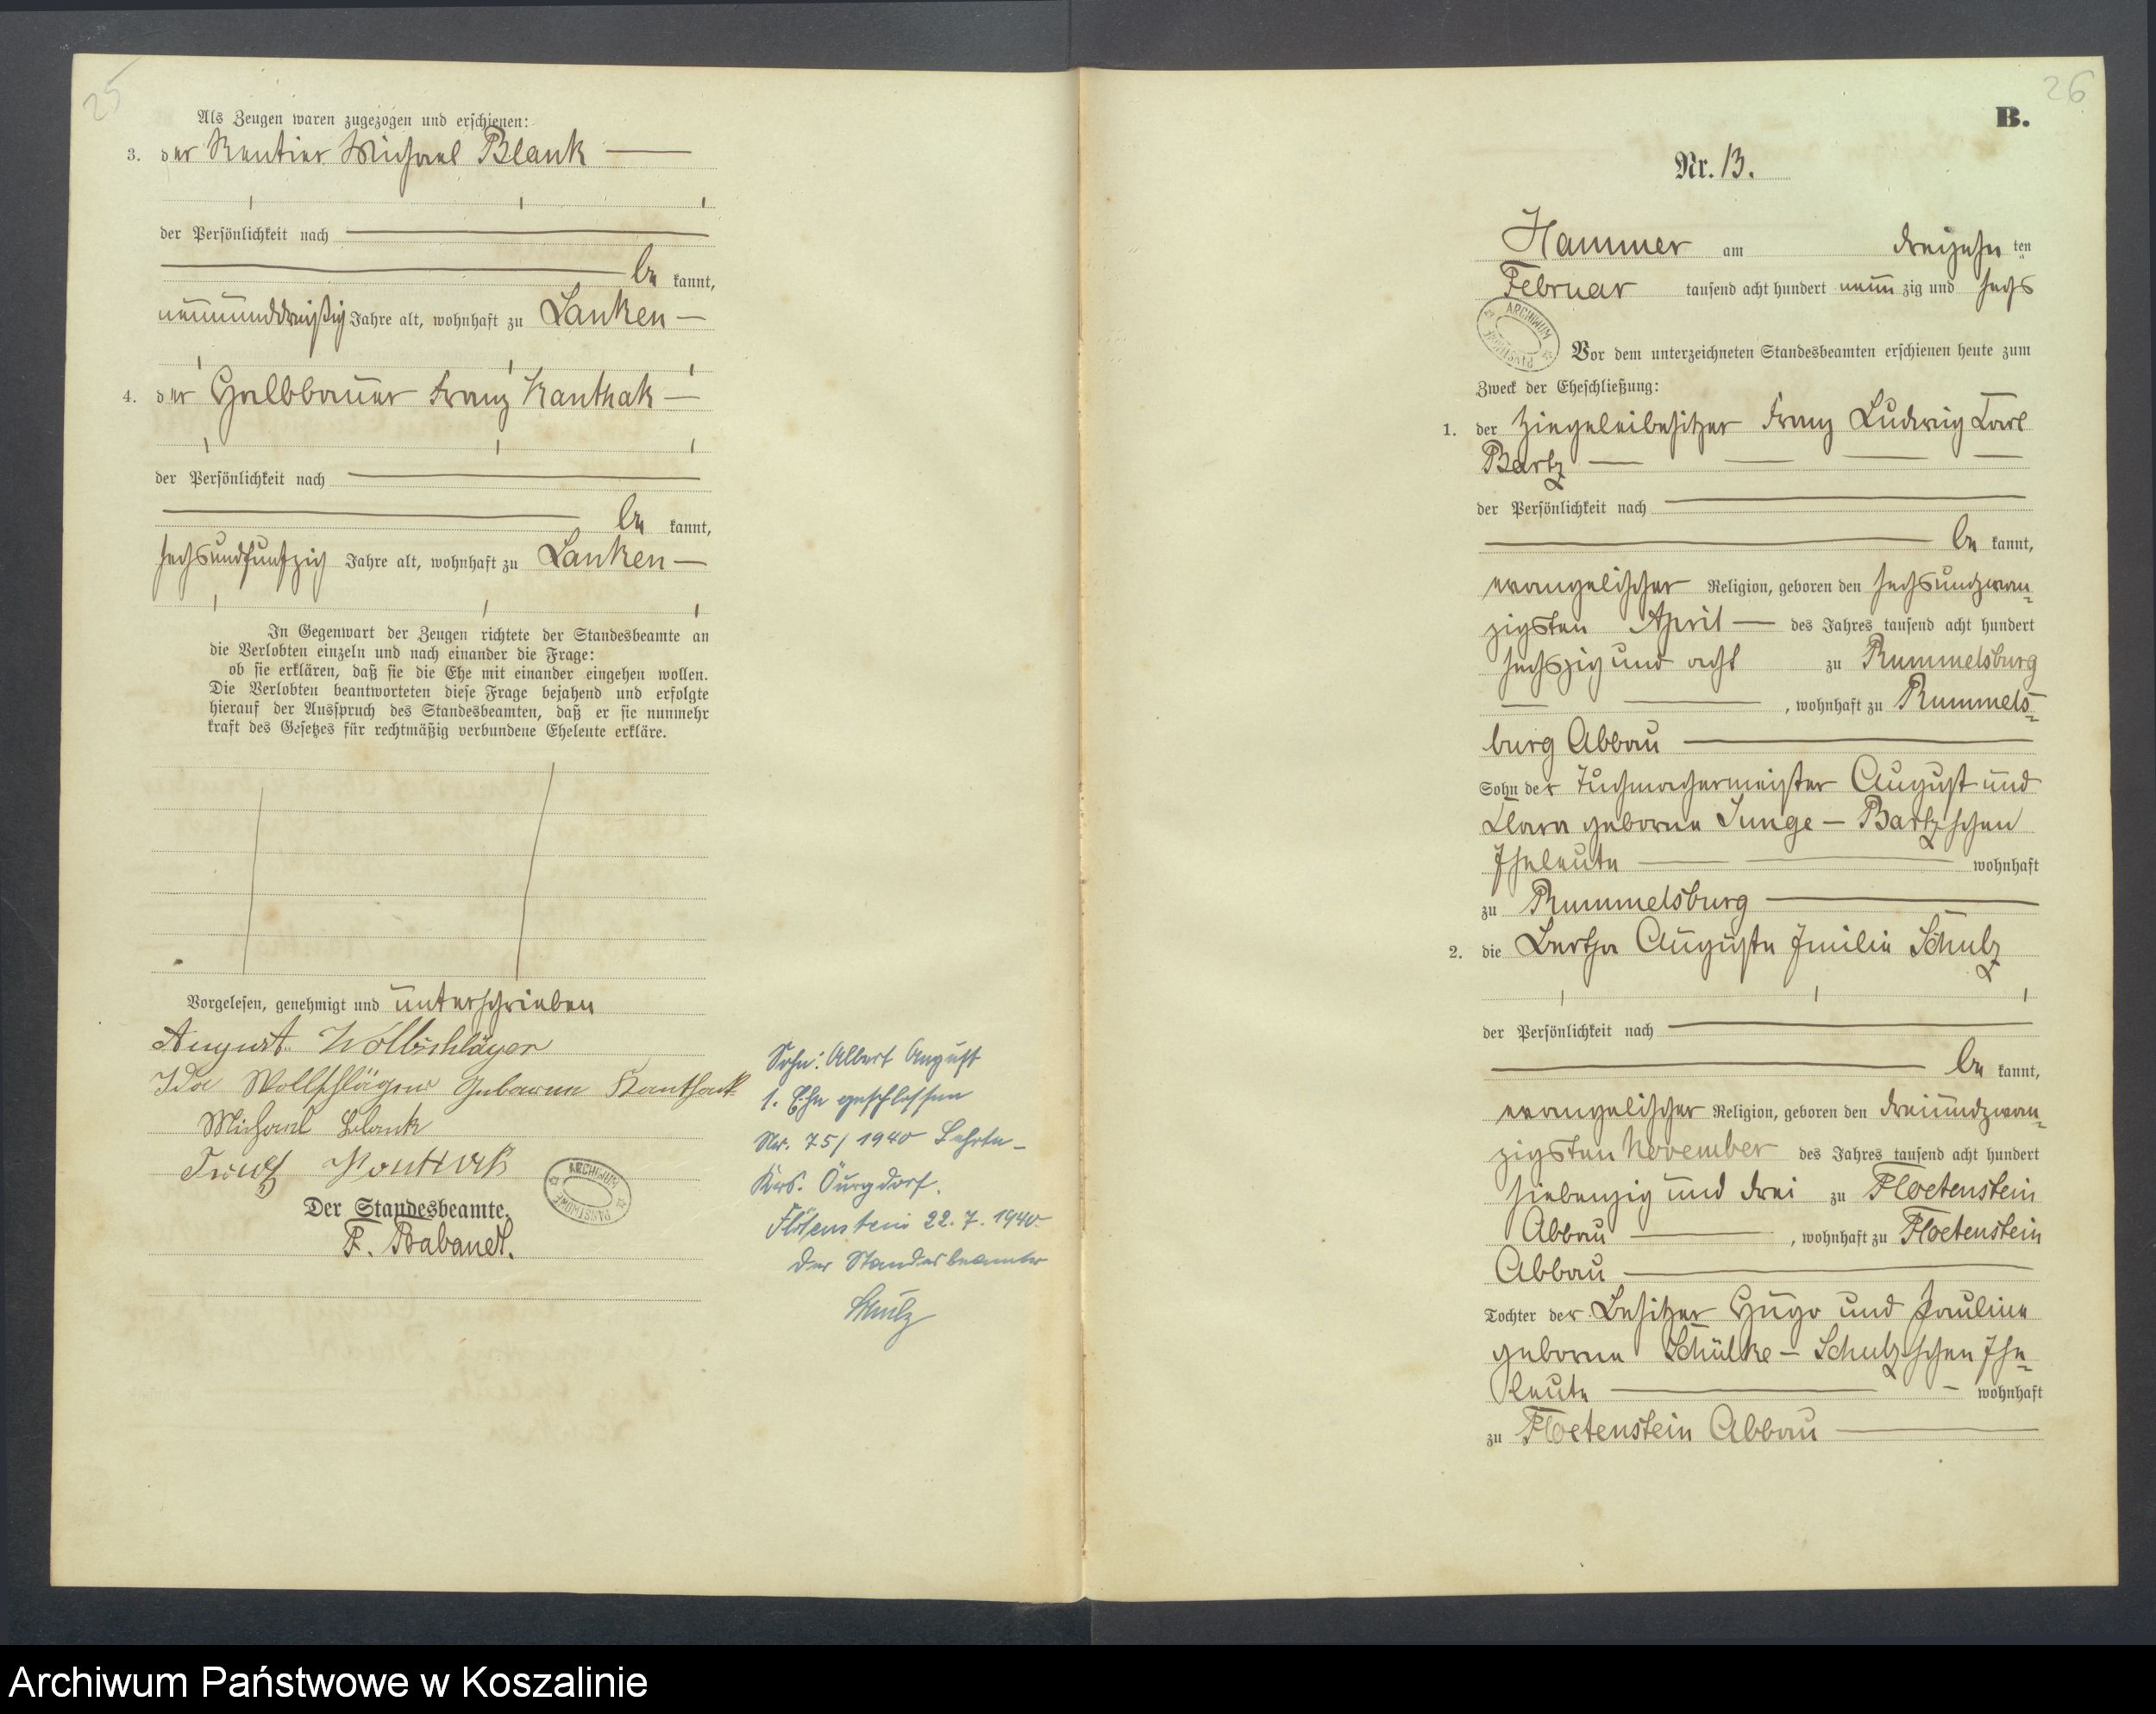 25
Als Zeugen waren zugezogen und erschienen:
3. der Rentier Michael Blank
der Persönlichkeit nach
be kannt,
neununddreißig Jahre alt, wohnhaft zu Lanken
4. der Halbbauer Franz Kanthak
der Persönlichkeit nach
be kannt,
sechsundfunfzig Jahre alt, wohnhaft zu Lanken
In Gegenwart der Zeugen richtete der Standesbeamte an
die Verlobten einzeln und nach einander die Frage:
ob sie erklären, daß sie die Ehe mit einander eingehen wollen.
Die Verlobten beantworteten diese Frage bejahend und erfolgte
hierauf der Ausspruch des Standesbeamten, daß er sie nunmehr
kraft des Gesetzes für rechtmäßig verbundene Eheleute erkläre.
Vorgelesen, genehmigt und unterschrieben
August Wollschläger
Ida Wollschläger geborene Kanthack
Michael Blank
Franz Kanthak
Der Standesbeamte.
F.
Sohn: Albert August
1. Ehe geschlossen
Nr. 75/1940 Lehrte
Krs. Burgdorf.
Flötenstein 22.7.1940
Der Standesbeamte
Schulz
26
B.
Nr. 13.
Hammer am dreizehn ten
Februar tausend acht hundert neun zig und sechs
ARCHIWUM PAŃSTWOWE
Vor dem unterzeichneten Standesbeamten erschienen heute zum
Zweck der Eheschließung:
1. der Ziegeleibesitzer Franz Ludwig Carl
Bartz
der Persönlichkeit nach
be kannt,
evangelischer Religion, geboren den sechsundzwan-
zigsten April des Jahres tausend acht hundert
sechszig und acht zu Rummelsburg
, wohnhaft zu Rummels-
burg Abbau
Sohn der Tuchmachermeister August und
Clara geborne Junge - Bartz'schen
Eheleute wohnhaft
zu Rummelsburg
2. die Bertha Auguste Emilie Schulz
der Persönlichkeit nach
be kannt,
evangelischer Religion, geboren den dreiundzwan-
zigsten November des Jahres tausend acht hundert
siebenzig und drei zu Floetenstein
Abbau , wohnhaft zu Floetenstein
Abbau
Tochter der Besitzer Hugo und Pauline
geborne Schülke - Schulz'schen Ehe-
leute wohnhaft
zu Floetenstein Abbau
Archiwum Państwowe w Koszalinie